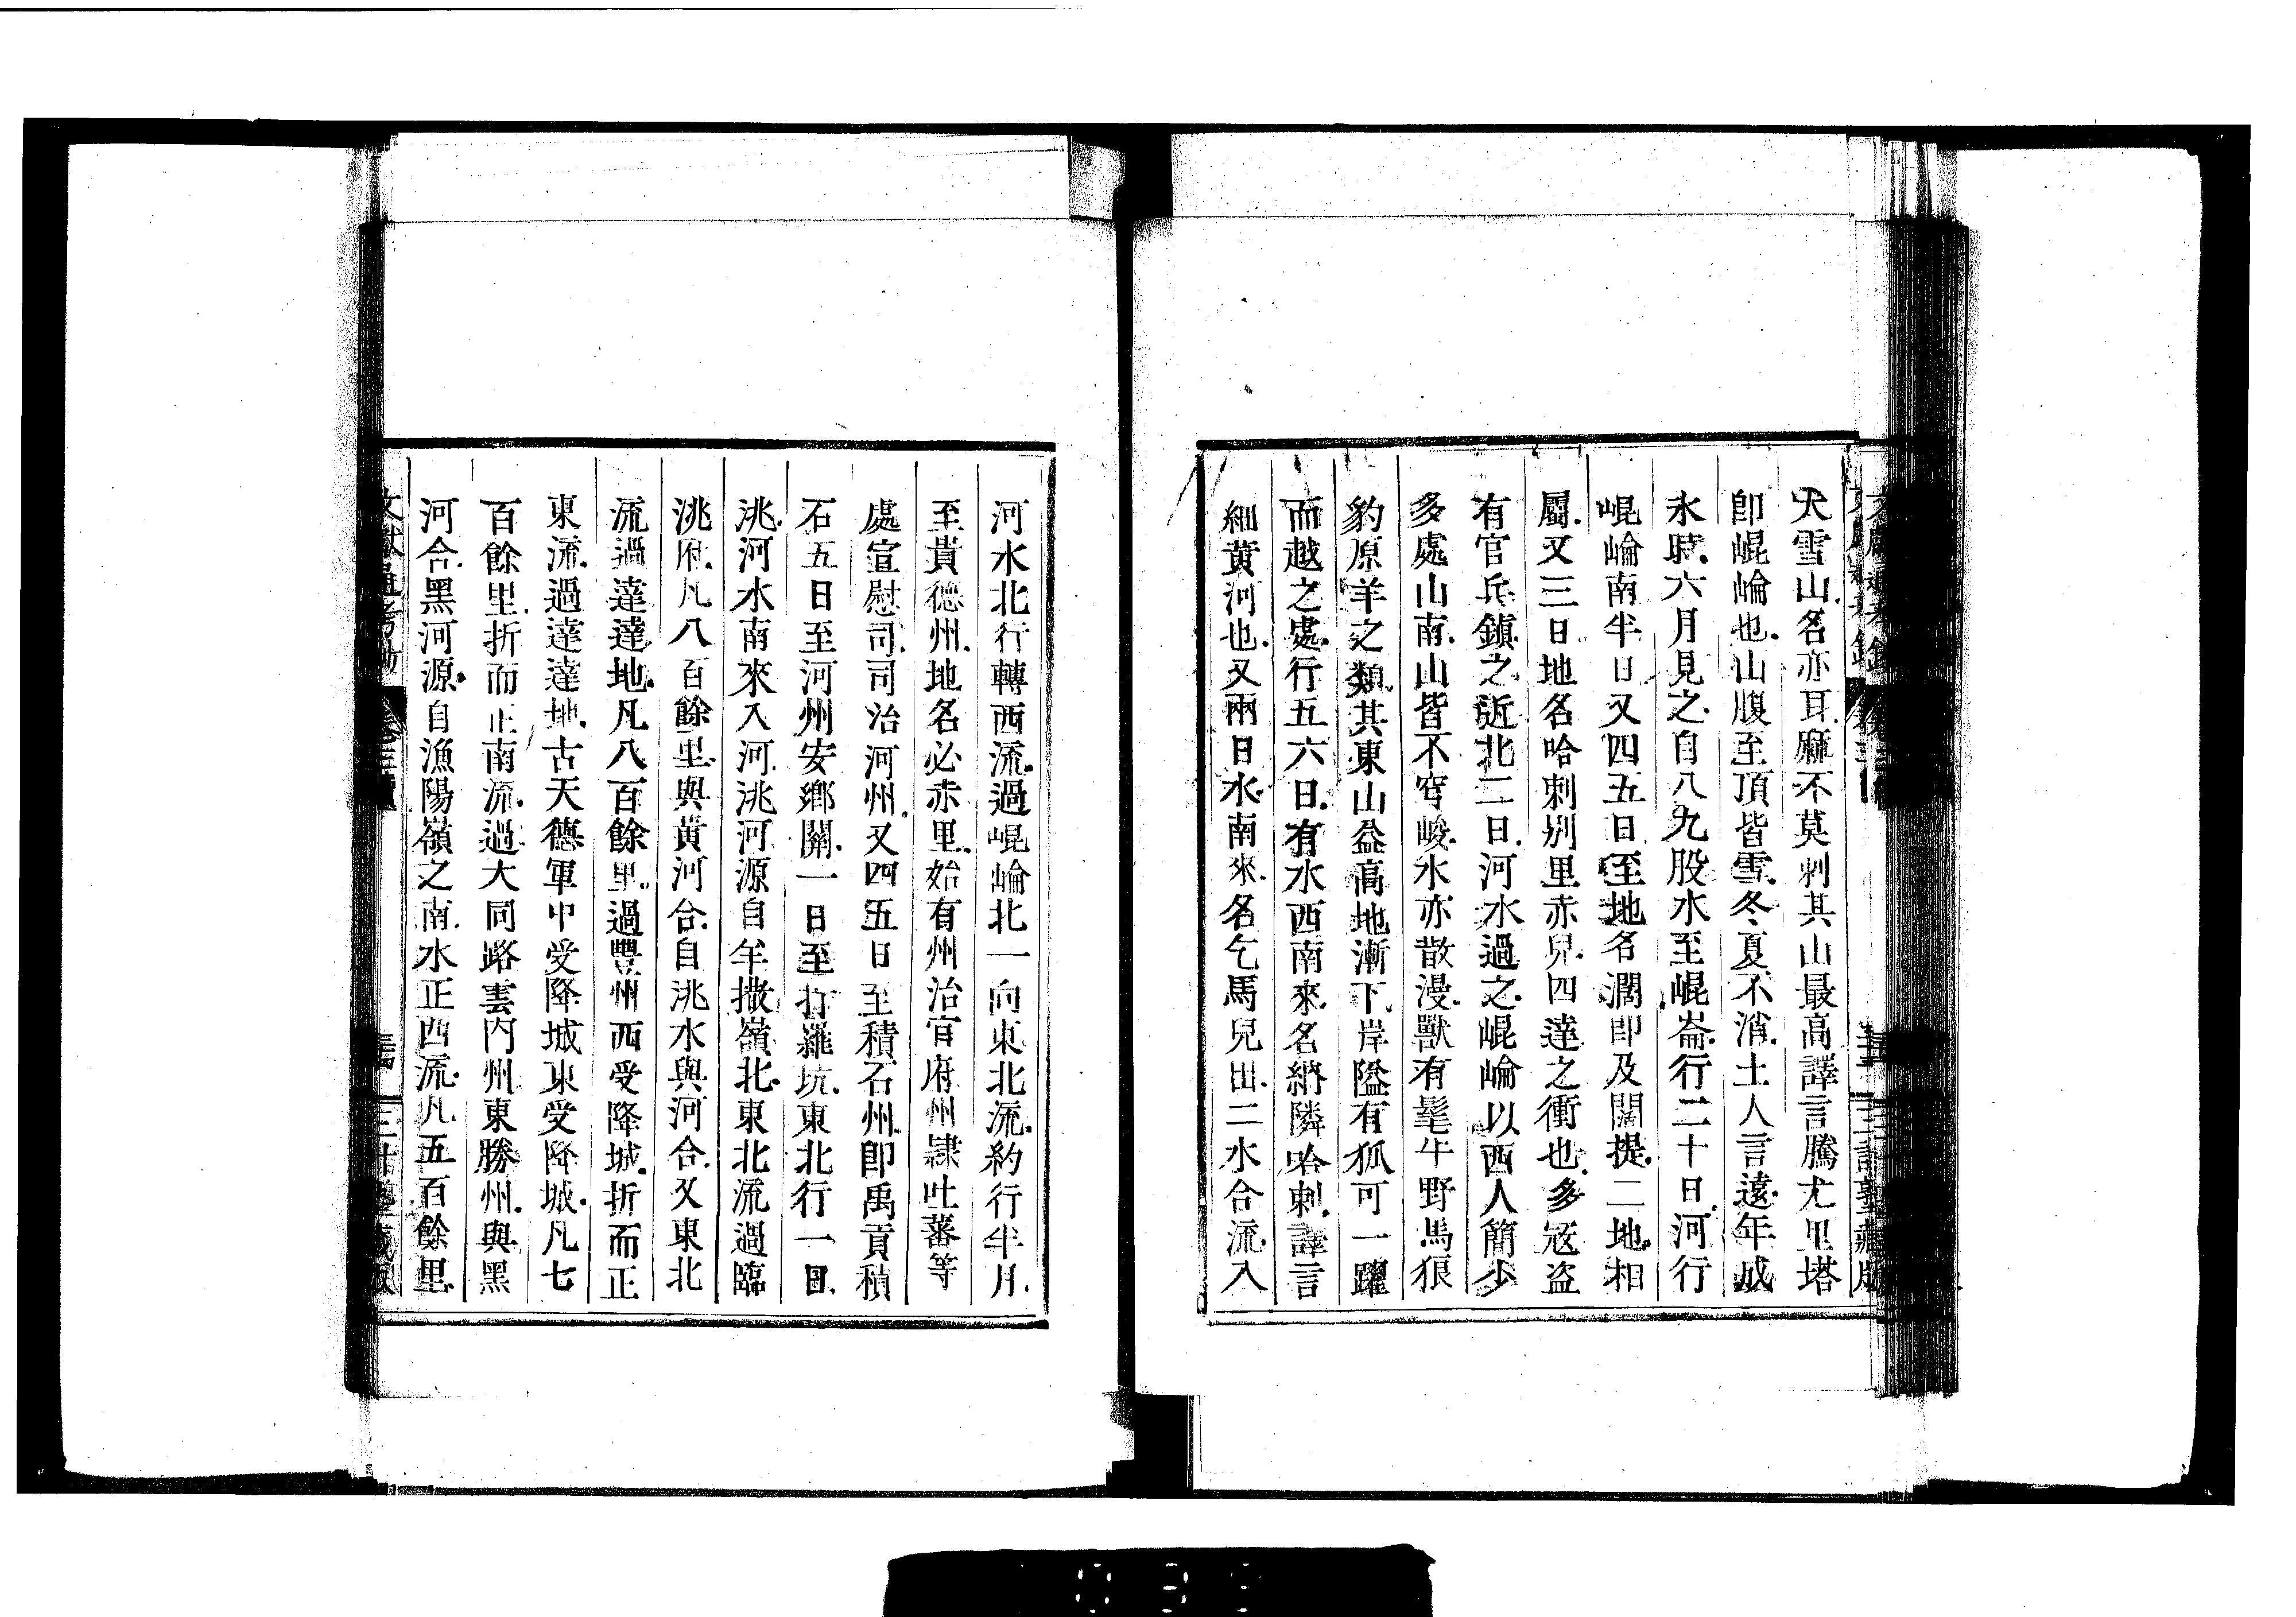 大雪山名亦耳麻不莫刺其山最高譯言騰尤里塔
即崐崘也山腹至頂皆雪冬夏不消土人言遠年成
氷時六月見之自八九股水至崐崙行二十日河行
崐崘南半日又四五日至地名濶即及闊提二地相
屬又三日地名哈刺別里赤兒四達之衝也多寇盗
有官兵鎮之近北二日河水過之崐崘以西人簡少
多處山南山皆不穹峻水亦散漫獸有髦牛野馬狼
豹原羊之類其東山益高地漸下岸隘有狐可一躍
而越之處行五六日有水西南來名納隣哈刺譯言
細黄河也又兩日水南來名乞馬兒出二水合流入
河水北行轉西流過崐崘北一向東北流約行半月
至貴德州地名必赤里始有州治官府州隸吐蕃等
處宣慰司司治河州又四五日至積石州即禹貢積
石五日至河州安鄉關一日至打羅坑東北行一日
洮河水南來入河洮河源自羊撒嶺北東北流過臨
洮府凡八百餘里與黄河合自洮水與河合又東北
流過達達地凡八百餘里過豐州西受降城折而正
東流過達達地古天德軍中受降城東受降城凡七
百餘里折而正南流過大同路雲內州東勝州與黑
河合黑河源自漁陽嶺之南水正西流凡五百餘里